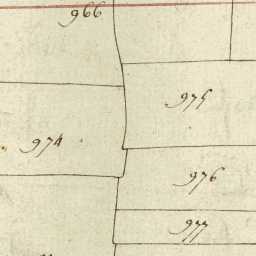 966
975
974
976
977